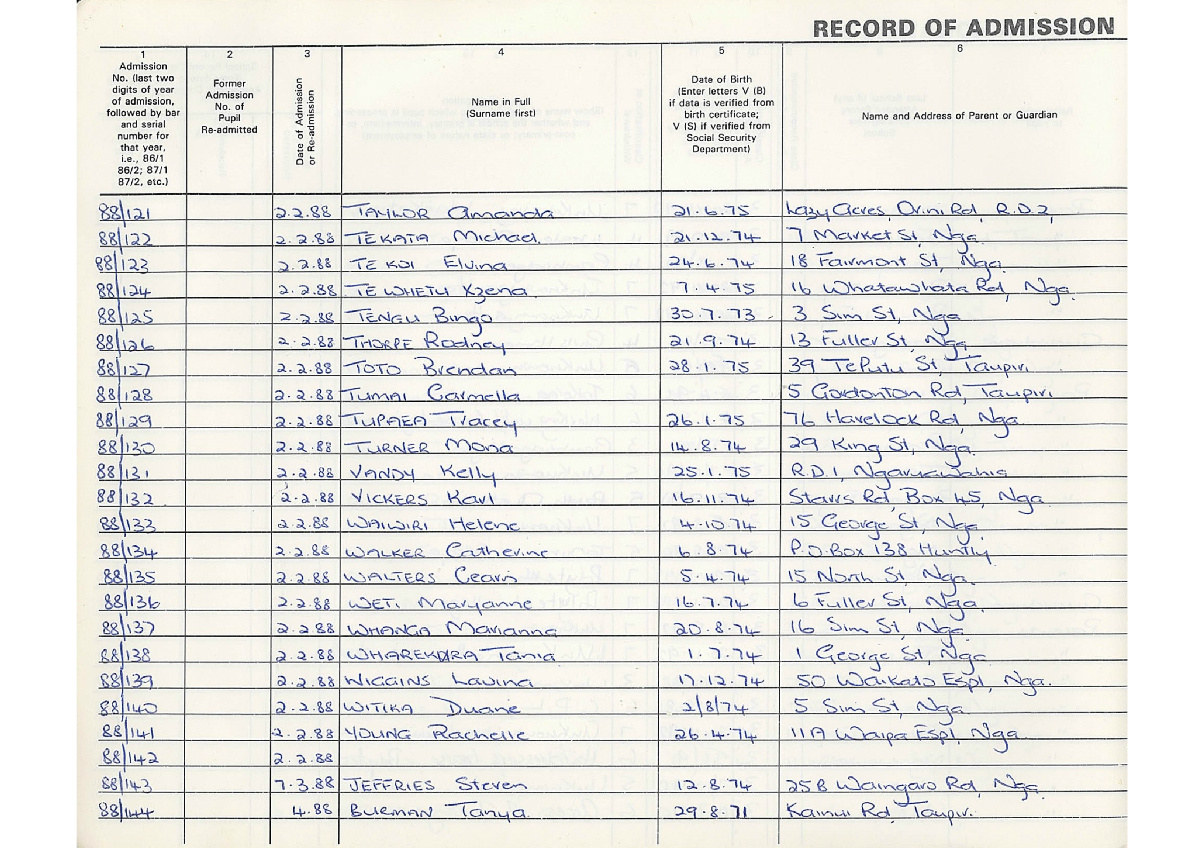 RECORD OF ADMISSION
1 2 3 4 5 6
Admission No. (last two digits of year of admission, followed by bar and serial number for that year, i.e., 86/1 86/2; 87/1 87/2, etc.)
Former Admission No. of Pupil Re-admitted
Date of Admission or Re-admission
Name in Full (Surname first)
Date of Birth (Enter letters V (B) if data is verified from birth certificate; V (S) if verified from Social Security Department)
Name and Address of Parent or Guardian
88/121 2.2.88 TAYLOR Amanda 21.6.75 Lazy Acres, Orini Rd, R.D.2,
88/122 2.2.88 TEKATA Michael. 21.12.74 7 Market St, Nga.
88/123 2.2.88 TE KOI Elvina 24.6.74 18 Fairmont St, Nga.
88/124 2.2.88 TE WHETU Xzena. 7.4.75 16 Whatawhata Rd, Nga.
88/125 2.2.88 TENGU Bingo 30.7.73. 3 Sim St, Nga
88/126 2.2.88 THORPE Rodney 21.9.74 13 Fuller St, Nga
88/127 2.2.88 TOTO Brendan 28.1.75 39 TePutu St, Taupiri
88/128 2.2.88 TUMAI Carmella 5 Gordonton Rd, Taupiri
88/129 2.2.88 TUPAEA Tracey 26.1.75 76 Havelock Rd, Nga
88/130 2.2.88 TURNER Mona 14.8.74 29 King St, Nga.
88/131 2.2.88 VANDY Kelly 25.1.75 R.D.1, Ngaruawahia
88/132 2.2.88 VICKERS Karl 16.11.74 Starrs Rd, Box 45, Nga
88/133 2.2.88 WAIWIRI Helene 4.10.74 15 George St, Nga.
88/134 2.2.88 WALKER Catherine 6.8.74 P.O.Box 138 Huntly
88/135 2.2.88 WALTERS Cearin 5.4.74 15 North St, Nga.
88/136 2.2.88 WETI Maryanne 16.7.74 6 Fuller St, Nga.
88/137 2.2.88 WHANGA Marianna 20.8.74 16 Sim St, Nga.
88/138 2.2.88 WHAREKURA Tania 1.7.74 1 George St, Nga.
88/139 2.2.88 WIGGINS Lavina 17.12.74 50 Waikato Espl, Nga.
88/140 2.2.88 WITIKA Duane 2/8/74 5 Sim St, Nga.
88/141 2.2.88 YOUNG Rachelle 26.4.74 11A Waipa Espl, Nga
88/142 2.2.88
88/143 7.3.88 JEFFRIES Steven 12.8.74 25B Waingaro Rd, Nga
88/144 4.88 BURMAN Tanya. 29.8.71 Kainui Rd, Taupiri.